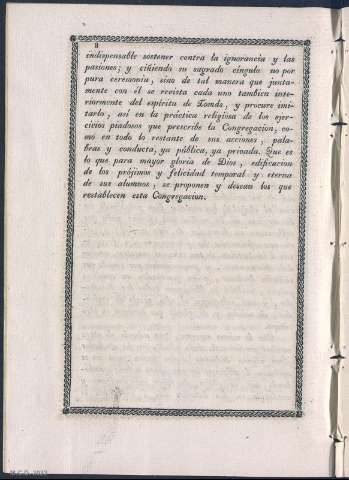 8
indispensable sostener contra la ignorancia y las
pasiones; y ciñendo su sagrado cíngulo no por
pura ceremonia, sino de tal manera que junta-
mente con él se revista cada uno tambien inte-
riormente del espíritu de Tomás, y procure imi-
tarlo, así en la práctica religiosa de los ejer-
cicios piadosos que prescribe la Congregacion, co-
mo en todo lo restante de sus acciones, pala-
bras y conducta, ya pública, ya privada. Que es
lo que para mayor gloria de Dios, edificacion
de los prójimos y felicidad temporal y eterna
de sus alumnos, se proponen y desean los que
restablecen esta Congregacion.